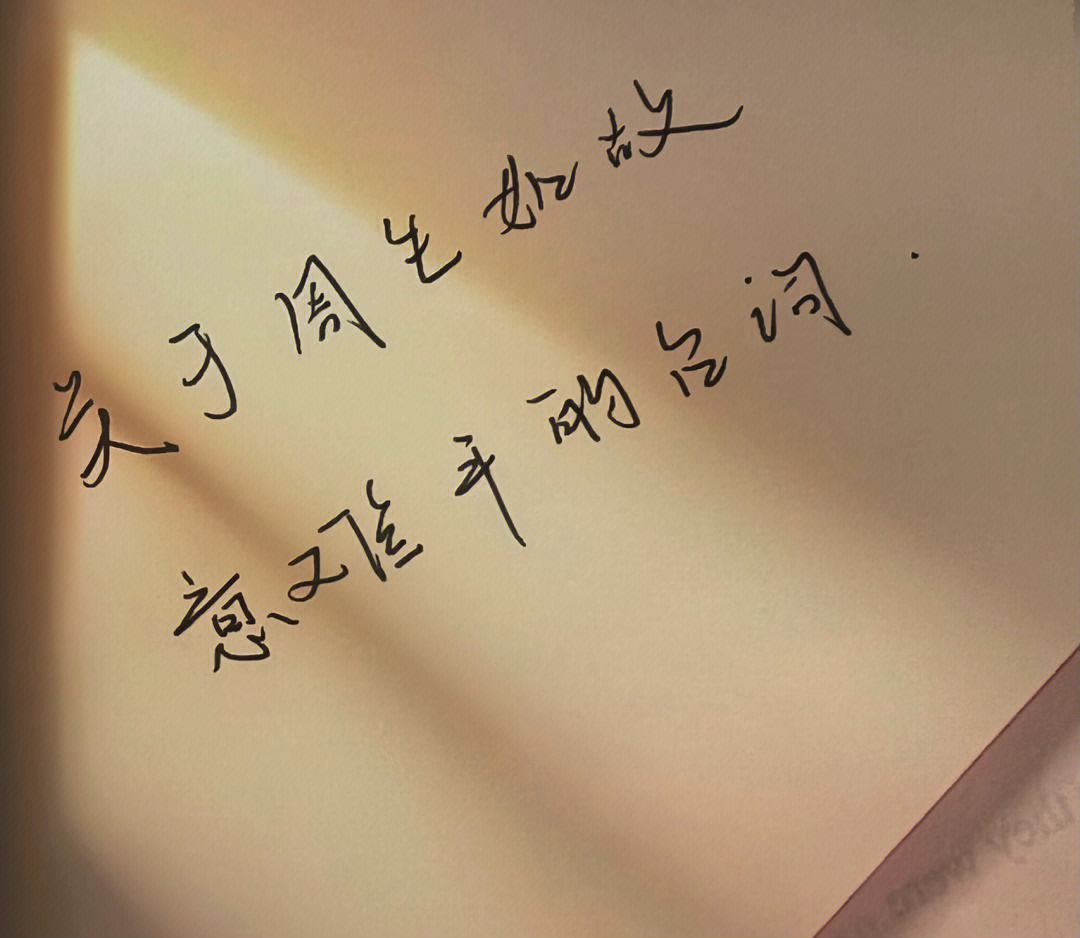 关于周生如故
意难平的台词.